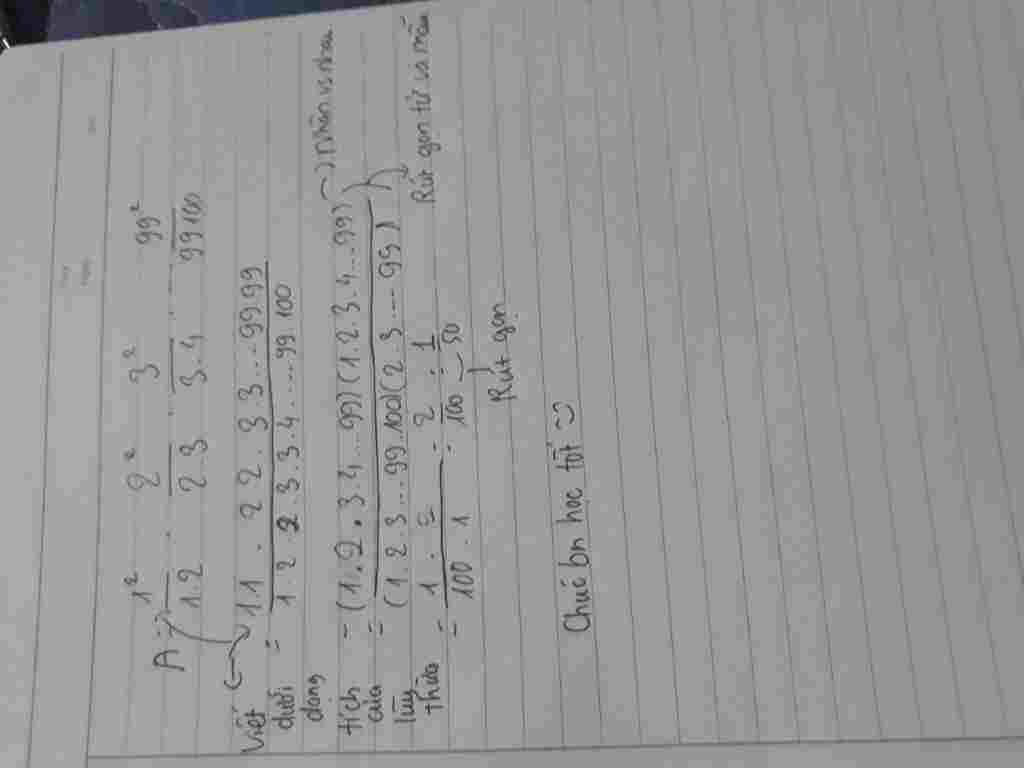 A = 1²/1.2 . 2²/2.3 . 3²/3.4 . ... 99²/99.100
Viết dưới dạng tích của lũy thừa
= 1.1 . 2 2 . 3 3 ... 99.99 / 1 2 2.3.3.4 ..... 99.100
= (1.2.3.4...99)(1.2.3.4...99) / (1.2.3...99.100)(2.3....99) → nhân vs nhau
Rút gọn tử và mẫu
= 1 . 2 / 100 . 1 = 2 / 100 = 1 / 50
Rút gọn
Chúc bn học tốt